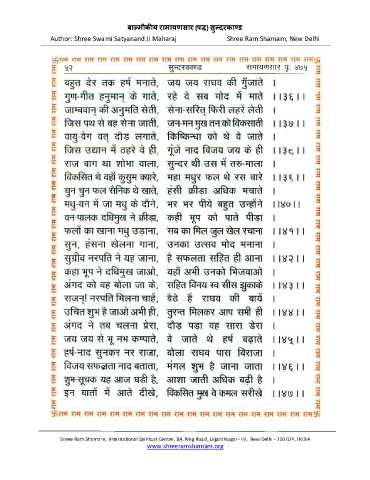 बाल्मीकीय रामायणसार (पद्य) सुन्दरकाण्ड
Author: Shree Swami Satyanand Ji Maharaj Shree Ram Sharnam, New Delhi
राम राम राम राम राम राम राम राम राम राम राम राम राम राम राम राम राम राम राम राम
५२ सुन्दरकाण्ड रामायणसार पृ. ४७५
बहुत देर तक हर्ष मनाते, जय जय राघव की गुँजाते ।
गुण-गीत हनुमान् के गाते, रहे वे सब मोद में माते ।।३६।।
जाम्बवान् की अनुमति सेती, सेना-सरित् फिरी लहरें लेती ।
जिस पथ से वह सेना जाती, जन-मन मुख तन को विकसाती ।।३७।।
वायु-वेग वत् दौड़ लगाते, किष्किन्धा को थे वे जाते ।
जिस उद्यान में ठहरे वे ही, गूंजे नाद विजय जय के ही ।।३८।।
राज बाग था शोभा वाला, सुन्दर थी उस में तरु-माला ।
विकसित थे वहाँ कुसुम क्यारे, महा मधुर फल थे रस वारे ।।३६।।
चुन चुन फल सैनिक थे खाते, हंसी क्रीड़ा अधिक मचाते ।
मधु-वन में जा मधु के दौने, भर भर पीये बहुत उन्होंने ।।४०।।
वन-पालक दधिमुख ने क्रीड़ा, कही भूप को पाते पीड़ा ।
फलों का खाना मधु उड़ाना, सब का मिल जुल खेल रचाना ।।४१।।
सुन, हंसना खेलना गाना, उनका उत्सव मोद मनाना ।
सुग्रीव नरपति ने यह जाना, है सफलता सहित ही आना ।।४२।।
कहा भूप ने दधिमुख जाओ, यहाँ अभी उनको भिजवाओ ।
अंगद को वह बोला जा के, सहित विनय स्व सीस झुकाके ।।४३।।
राजन्! नरपति मिलना चाहें, बैठे हैं राघव की बायें ।
उचित शुभ है जाओ अभी ही, तुरन्त मिलकर आप सभी ही ।।४४।।
अंगद ने तब चलना प्रेरा, दौड़ पड़ा वह सारा डेरा ।
जय जय से भू नभ कम्पाते, वे जाते थे हर्ष बढ़ाते ।।४५।।
हर्ष-नाद सुनकर नर राजा, बोला राघव पास विराजा ।
विजय सफलता नाद बताता, मंगल शुभ है जाना जाता ।।४६।।
शुभ-सूचक यह आज घड़ी है, आशा जाती अधिक बढ़ी है ।
इन बातों में आते दीखे, विकसित मुख वे कमल सरीखे ।।४७।।
राम राम राम राम राम राम राम राम राम राम राम राम राम राम राम राम राम राम राम राम
Shree Ram Sharnam, International Spiritual Centre, 8A, Ring Road, Lajpat Nagar - IV, New Delhi - 110 024, INDIA
www.shreeramsharnam.org